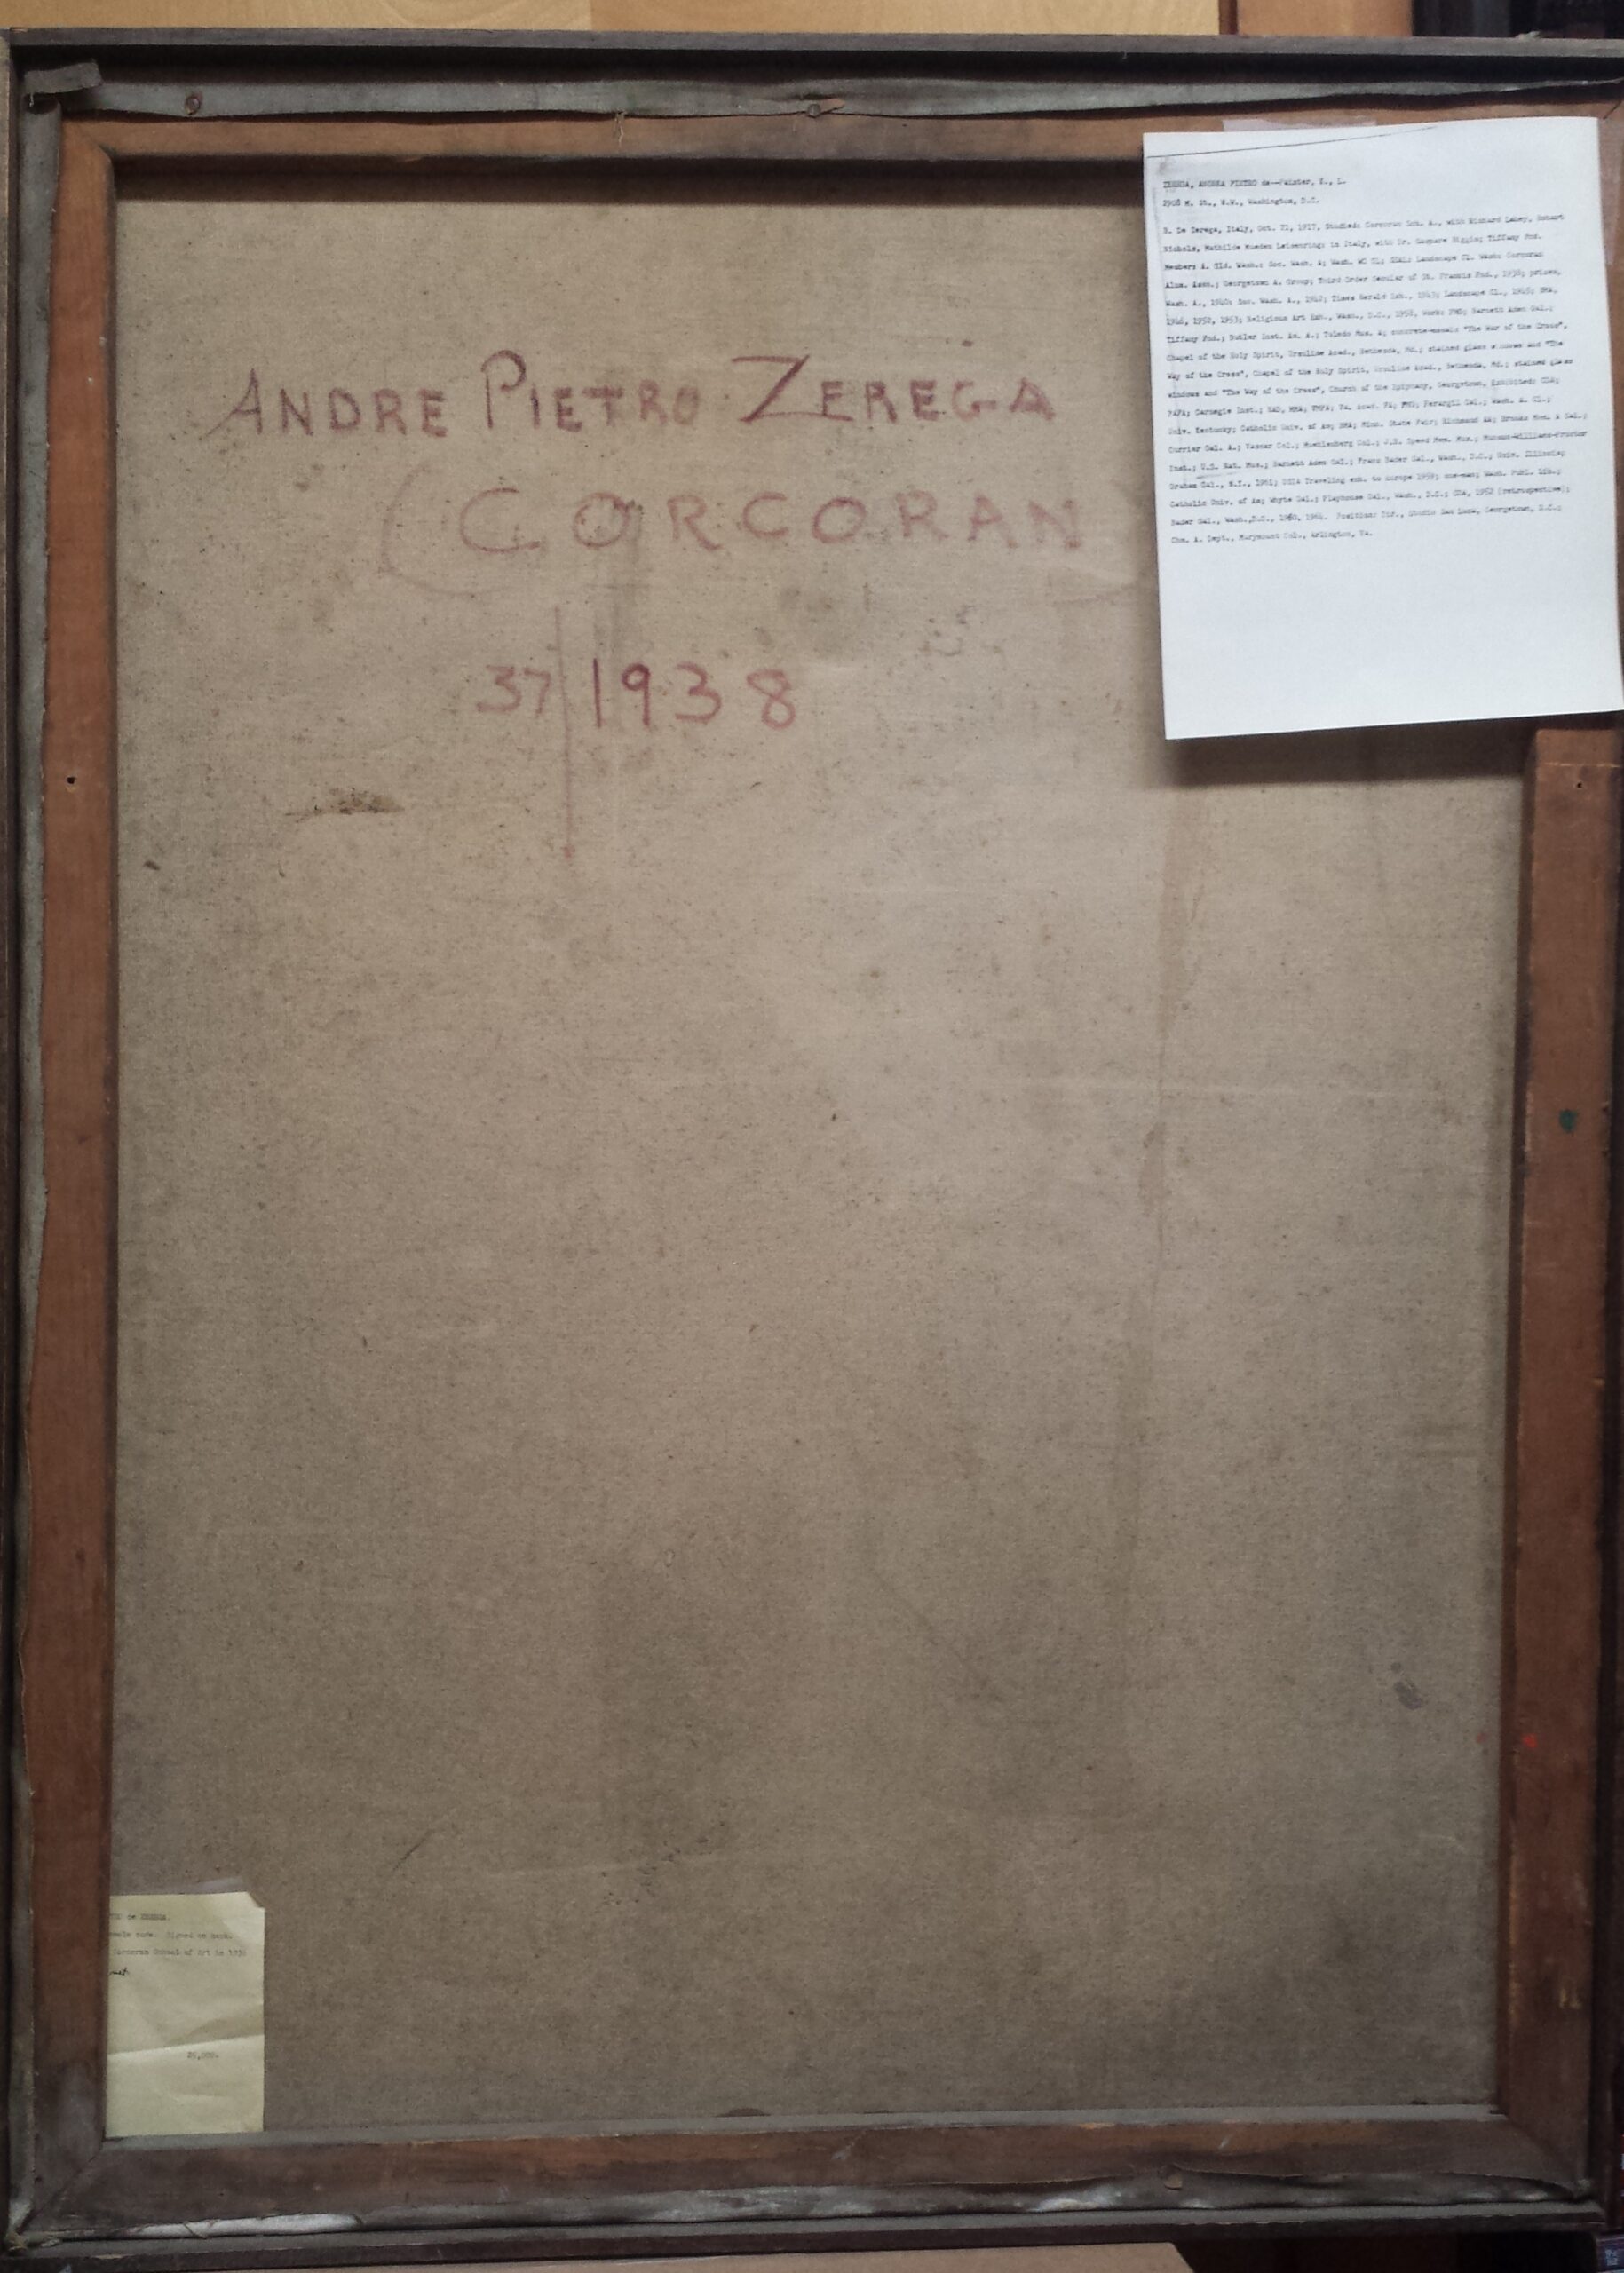 ANDRE PIETRO ZEREGA
(CORCORAN)
37 1938
ZEREGA, ANDREA PIETRO de--Painter, T., L.
2908 M. St., N.W., Washington, D.C.
B. De Zerega, Italy, Oct. 21, 1917, Studied: Corcoran Sch. A., with Richard Lahey, Hobart
Nichols, Mathilde Mueden Leisenring; in Italy, with Dr. Gaspare Biggio; Tiffany Fnd.
Member: A. Gld. Wash.; Soc. Wash. A; Wash. WC Cl; Landscape Cl. Wash; Corcoran
Alum. Assn.; Georgetown A. Group; Third Order Secular of St. Francis Fnd., 1938; prizes,
Wash. A., 1940; Soc. Wash. A., 1942; Times Herald Exh., 1943; Landscape Cl., 1945; BMA,
1946, 1952, 1953; Religious Art Exh., Wash., D.C., 1958, Work: PMG; Barnett Aden Gal.;
Tiffany Fnd.; Butler Inst. Am. A.; Toledo Mus. A; concrete-mosaic "The Way of the Cross",
Chapel of the Holy Spirit, Ursuline Acad., Bethesda, Md.; stained glass windows and "The
Way of the Cross", Chapel of the Holy Spirit, Ursuline Acad., Bethesda, Md.; stained glass
windows and "The Way of the Cross", Church of the Epiphany, Georgetown, Exhibited: CGA;
PAFA; Carnegie Inst.; NAD, BMA; VMFA; Pa. Acad. FA; PMG; Ferargil Gal.; Wash. A. Cl.;
Univ. Kentucky; Catholic Univ. of Am; BMA; Minn. State Fair; Richmond AA; Brooks Mem. A Gal.;
Currier Gal. A.; Vassar Col.; Muehlenberg Col.; J.B. Speed Mem. Mus.; Munson-Williams-Proctor
Inst.; U.S. Nat. Mus.; Barnett Aden Gal.; Franz Bader Gal., Wash., D.C.; Univ. Illinois;
Graham Gal., N.Y., 1961; USIA Traveling exh. to Europe 1959; one-man; Wash. Publ. Lib.;
Catholic Univ. of Am; Whyte Gal.; Playhouse Gal., Wash., D.C.; CGA, 1952 (retrospective);
Bader Gal., Wash.,D.C., 1960, 1964. Position: Dir., Studio San Luca, Georgetown, D.C.;
Chm. A. Dept., Marymount Col., Arlington, Va.
de ZEREGA.
nude. Signed on back.
Corcoran School of Art in